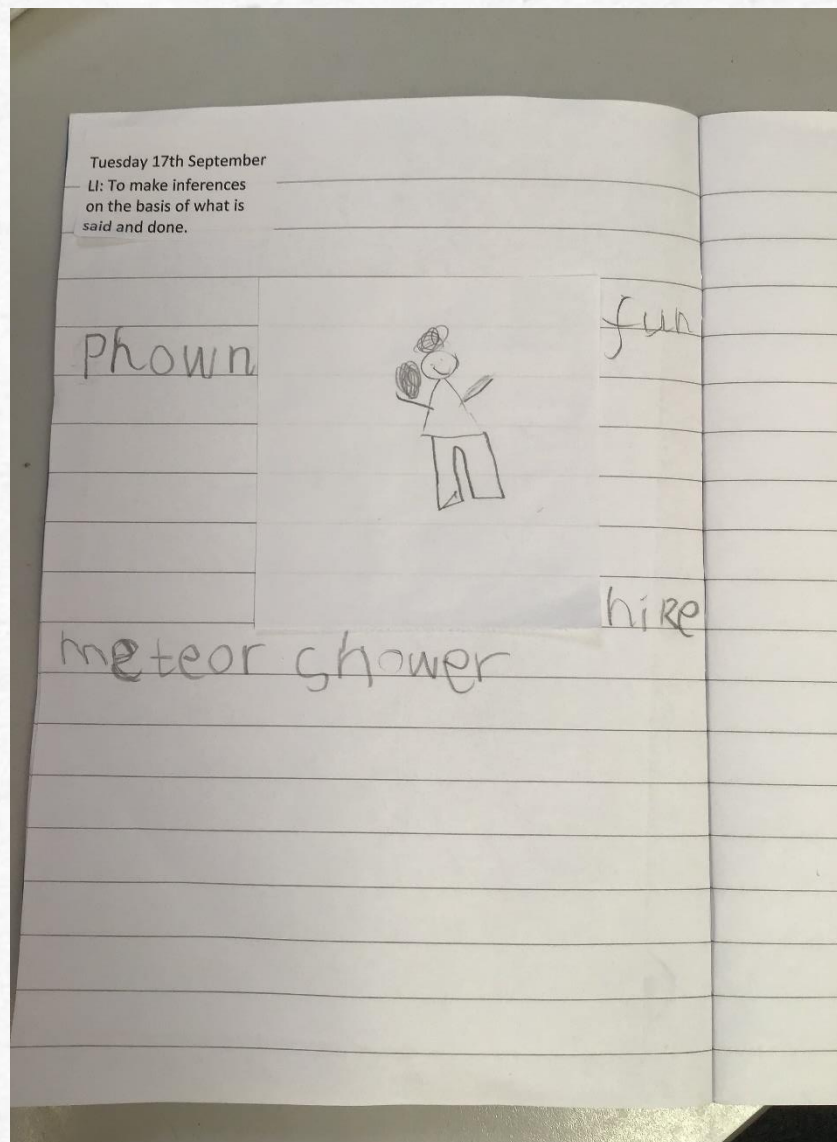 Tuesday 17th September
LI: To make inferences
on the basis of what is
said and done.
fun
Phown
hike
meteor shower